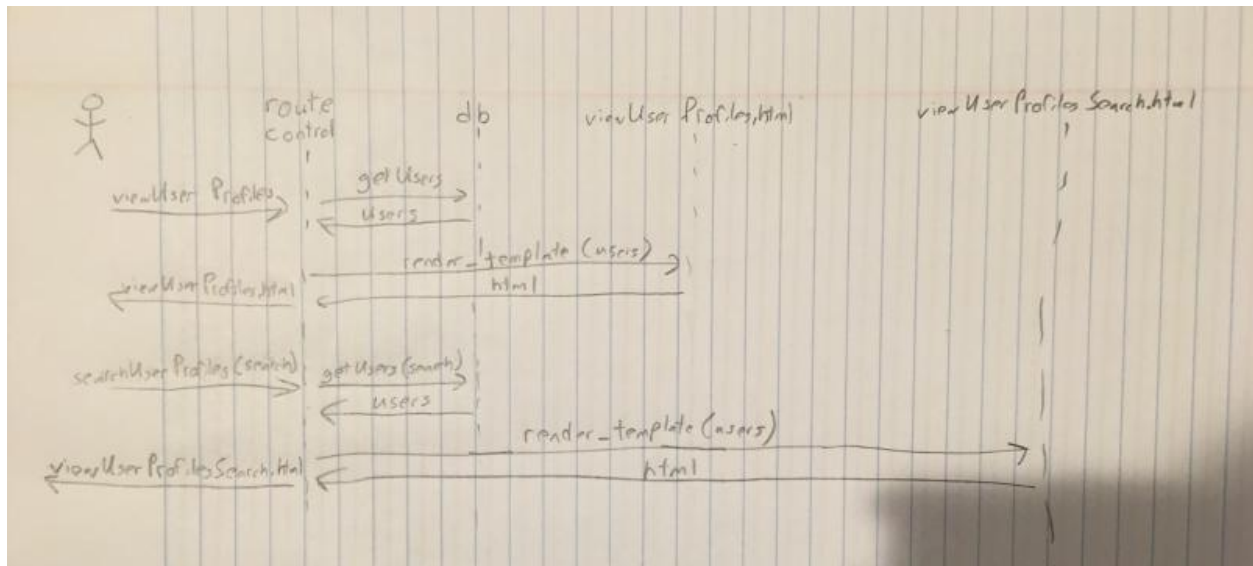 route
control
db
viewUser Profiles.html
viewUserProfilesSearch.html
viewUser Profiles
getUsers
users
render_template (users)
viewUserProfiles.html
html
searchUserProfiles(search)
getUsers(search)
users
render_template (users)
viewUserProfilesSearch.html
html